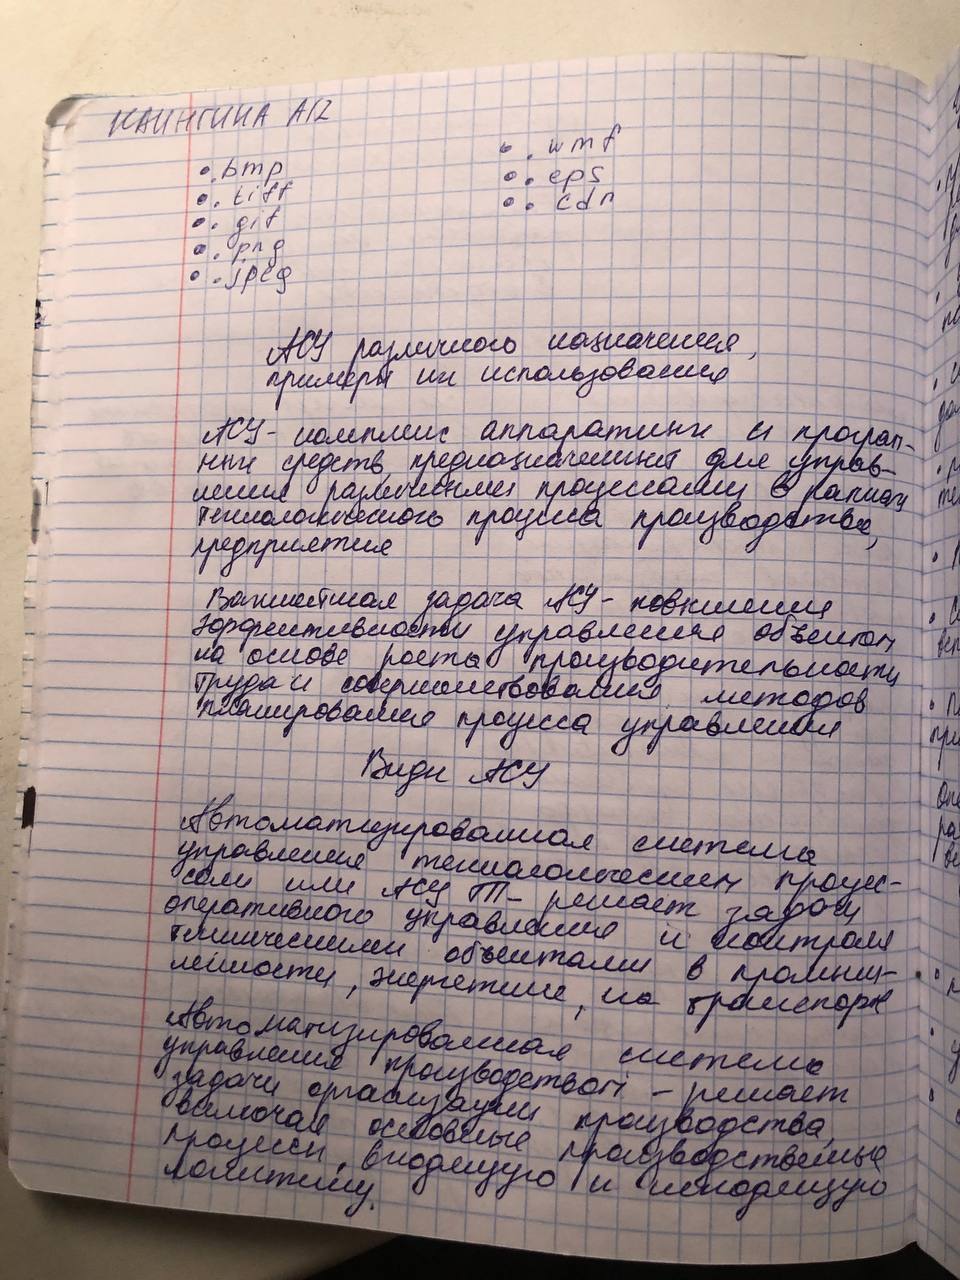 АП2
. bmp
. tiff
. gif
. png
. jpeg
. wmf
. eps
. cdr
АСУ различного назначения,
примеры их использования
АСУ - комплекс аппаратных и програм-
ных средств предназначенный для управ-
ления различными процессами в рамках
технологического процесса производства,
предприятия
Важнейшая задача АСУ - повышения
эффективности управления объектом
на основе роста производительности
труда и совершенствования методов
планирования процесса управления
Виды АСУ
Автоматизированная система
управления технологическим процес-
сом или АСУ ТП - решает задачи
оперативного управления и контроля
техническими объектами в промыш-
лености, энергетике, на транспорте
Автоматизированная система
управления производством - решает
задачи организации производства,
включая основные производственные
процессы, входящую и исходящую
логистику.